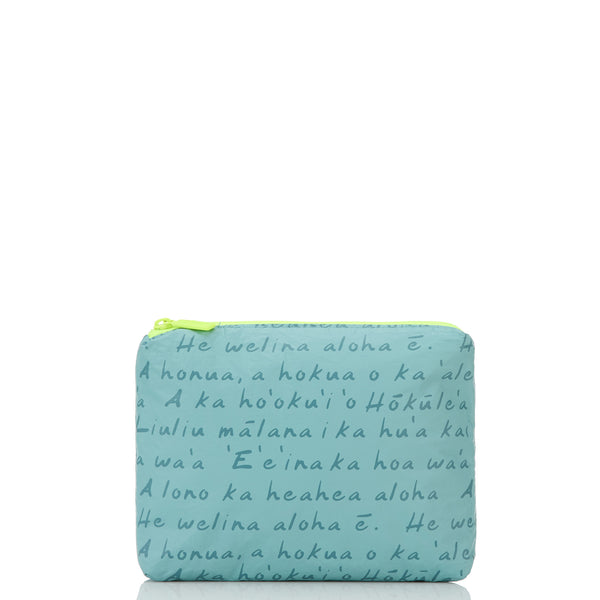 He welina aloha ē. H
A honua, a hokua o ka 'ale
'a A ka ho'oku'i 'o Hōkūle'a
Liuliu mālana i ka hu'a kai
a wa'a 'E'e'ina ka hoa wa'a
A lono ka heahea aloha A
He welina aloha ē. He we
A honua, a hokua o ka 'ale
A ka ho'oku'i 'o Hōkūle